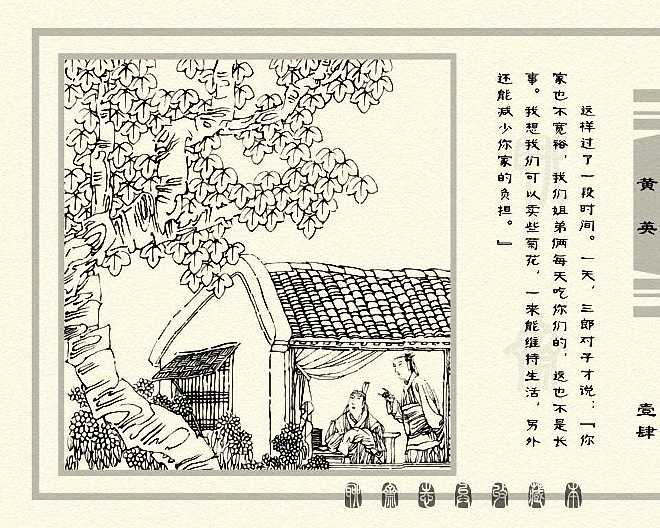 这样过了一段时间。一天，三郎对子才说：「你
家也不宽裕，我们姐弟俩每天吃你们的，这也不是长
事。我想我们可以卖些菊花，一来能维持生活，另外
还能减少你家的负担。」
黄英
壹肆